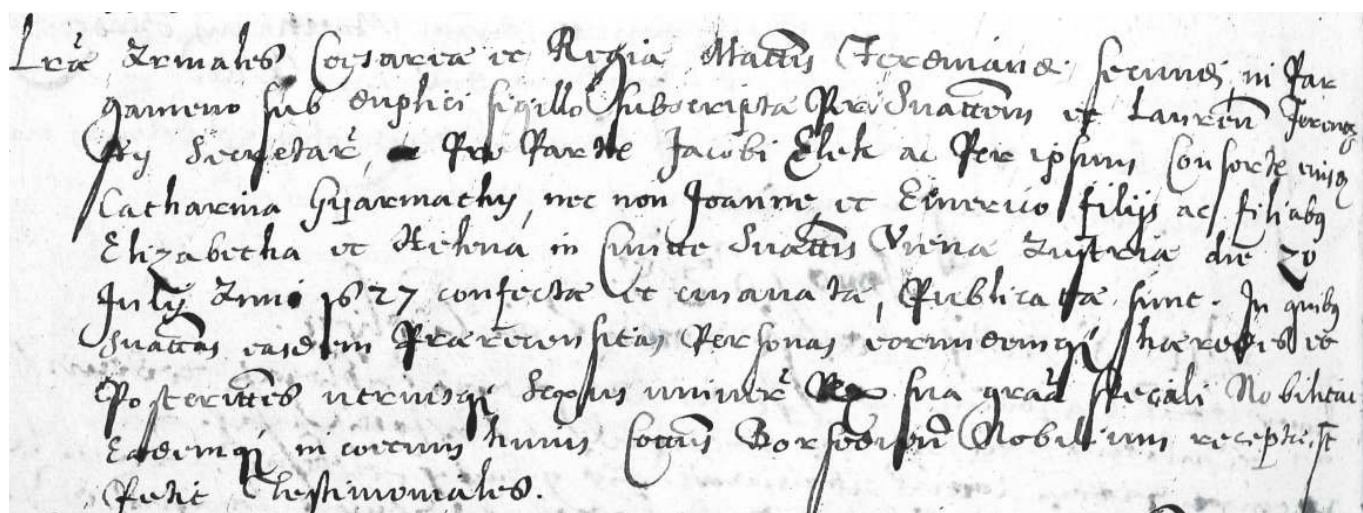 Lrae Armales Caesareae et Regiae Mattis Ferdinandi secundi, in Par
gameno sub duplici sigillo subscripta Per Suattem et Lauren Ferencz
ffy Secretar, Pro Parte Jacobi Elek ac Per ipsum Consorte eiusq
Catharina Gyarmathy, nec non Joanne et Emerico filijs ac filiabq
Elizabetha et Helena in Civitte Suattis Viena Austriae die 20
July Anni 1627 confectae et emanatae, Publicatae sunt. In quibq
Suattas easdem Praerecensitas Personas eorundemq haeredes et
Posterittes utriusq Sexus univer sua gra Speciali Nobilitau
Eademq in coetum huius Cottus Borsodien Nobilium receptae st
Petit Testimoniales.